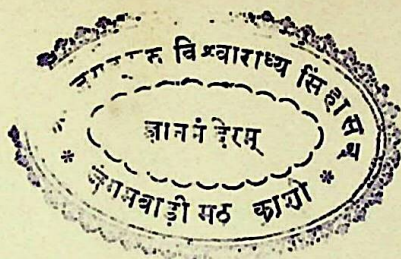 विश्वाराध्य सिंहासन
ज्ञानमंदिरम्
* जंगमवाड़ी मठ काशी *